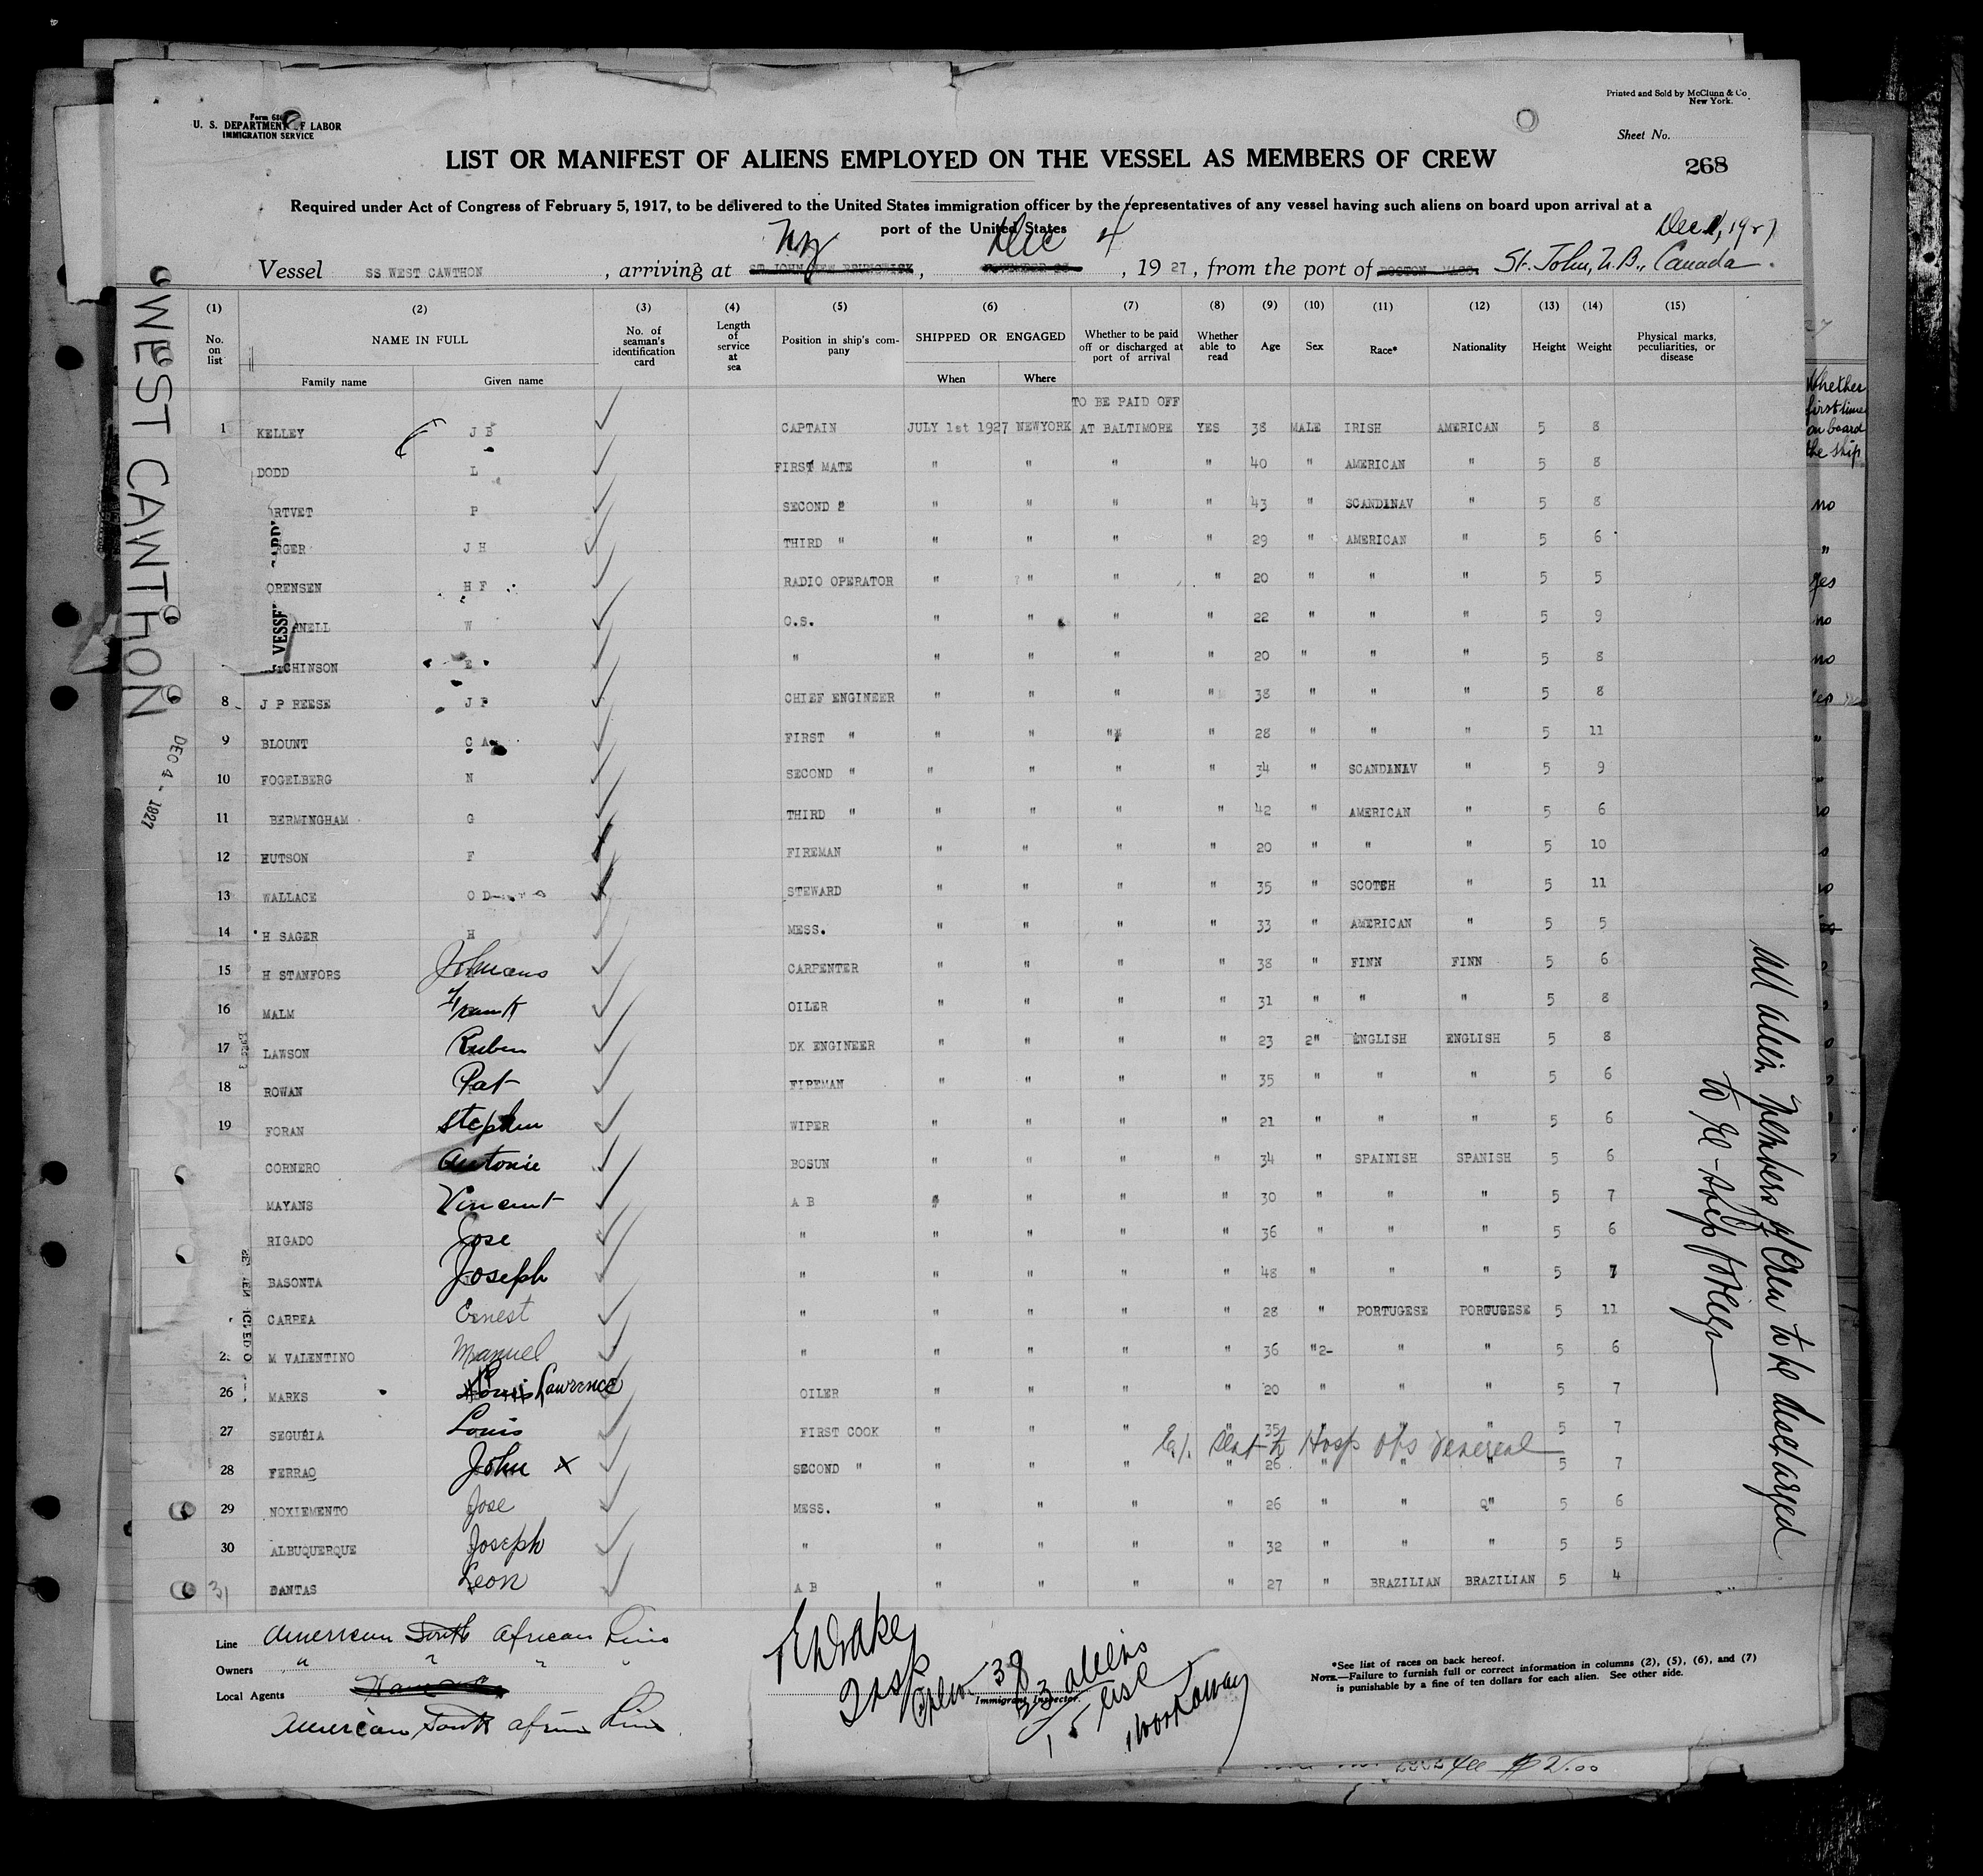 Form 680
U. S. DEPARTMENT OF LABOR
IMMIGRATION SERVICE
Printed and Sold by McClunn & Co.
New York.
Sheet No.
268
LIST OR MANIFEST OF ALIENS EMPLOYED ON THE VESSEL AS MEMBERS OF CREW
Required under Act of Congress of February 5, 1917, to be delivered to the United States immigration officer by the representatives of any vessel having such aliens on board upon arrival at a
port of the United States
Dec 1, 1927
Vessel SS WEST CAWTHON, arriving at ST. JOHN NEW BRUNSWICK NY, NOVEMBER 23 Dec 4, 1927, from the port of BOSTON MASS. St. John, N.B., Canada.
WEST CAWTHON
DEC 4 - 1927
(1) (2) (3) (4) (5) (6) (7) (8) (9) (10) (11) (12) (13) (14) (15)
No. on list NAME IN FULL No. of seaman's identification card Length of service at sea Position in ship's company SHIPPED OR ENGAGED Whether to be paid off or discharged at port of arrival Whether able to read Age Sex Race* Nationality Height Weight Physical marks, peculiarities, or disease
Family name Given name When Where
Whether first time on board the ship
TO BE PAID OFF
1 KELLEY J B CAPTAIN JULY 1st 1927 NEWYORK AT BALTIMORE YES 38 MALE IRISH AMERICAN 5 8
DODD L FIRST MATE " " " " 40 " AMERICAN " 5 8
RTVET P SECOND " " " " " 43 " SCANDINAV " 5 8 no
RGER J H THIRD " " " " " 29 " AMERICAN " 5 6 "
ORENSEN H F RADIO OPERATOR " " " " 20 " " " 5 5 yes
NELL W O.S. " " " " 22 " " " 5 9 no
CHINSON E " " " " " 20 " " " 5 8 no
8 J P REESE J P CHIEF ENGINEER " " " " 38 " " " 5 8
9 BLOUNT C A FIRST " " " " " 28 " " " 5 11
10 FOGELBERG N SECOND " " " " " 34 " SCANDINAV " 5 9
11 BERMINGHAM G THIRD " " " " " 42 " AMERICAN " 5 6
12 HUTSON F FIREMAN " " " " 20 " " " 5 10
13 WALLACE O D STEWARD " " " " 35 " SCOTCH " 5 11
14 H SAGER H MESS. " " " " 33 " AMERICAN " 5 5
15 H STANFORS Johmans CARPENTER " " " " 38 " FINN FINN 5 6
16 MALM Frank OILER " " " " 31 " " " 5 8
17 LAWSON Ruben DK ENGINEER " " " " 23 2" ENGLISH ENGLISH 5 8
18 ROWAN Pat FIREMAN " " " " 35 " " " 5 6
19 FORAN Stephen WIPER " " " " 21 " " " 5 6
CORNERO Antonie BOSUN " " " " 34 " SPAINISH SPANISH 5 6
MAYANS Vincent A B " " " " 30 " " " 5 7
RIGADO Jose " " " " " 36 " " " 5 6
BASONTA Joseph " " " " " 48 " " " 5 7
CARREA Ernest " " " " " 28 " PORTUGESE PORTUGESE 5 11
2 M VALENTINO Manuel " " " " " 36 "2- " " 5 6
26 MARKS Louis Lawrence OILER " " " " 20 " " " 5 7
27 SEGURIA Louis FIRST COOK " " " " 35 " " " 5 7
Hosp obs venereal
28 FERRAO John X SECOND " " " " " 26 " " " 5 7
29 NOXIEMENTO Jose MESS. " " " " 26 " " Q" 5 6
30 ALBUQUERQUE Joseph " " " " " 32 " " " 5 5
31 DANTAS Leon A B " " " " 27 " BRAZILIAN BRAZILIAN 5 4
All alien members of Crew to be discharged
to re-ship foreign
Line American South African Line
Owners " " " "
Local Agents
American South African Line
Drake
Insp
Immigrant Inspector.
Crew 38
23 aliens
15 USC
1 workaway
*See list of races on back hereof.
NOTE.—Failure to furnish full or correct information in columns (2), (5), (6), and (7)
is punishable by a fine of ten dollars for each alien. See other side.